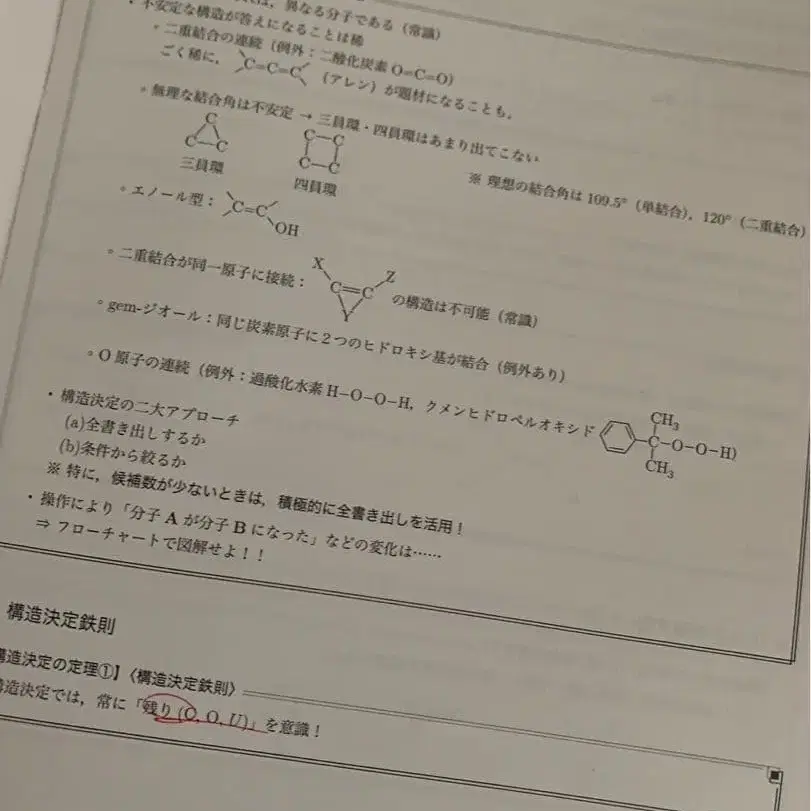 は，異なる分子である（常識）
・不安定な構造が答えになることは稀
◦二重結合の連続（例外：二酸化炭素 O=C=O）
ごく稀に， C=C=C （アレン）が題材になることも。
◦無理な結合角は不安定 → 三員環・四員環はあまり出てこない
C C–C
C–C C–C
三員環 四員環
※ 理想の結合角は 109.5°（単結合），120°（二重結合）
◦エノール型： C=C OH
◦二重結合が同一原子に接続： X C=C Z Y の構造は不可能（常識）
◦gem-ジオール：同じ炭素原子に２つのヒドロキシ基が結合（例外あり）
◦O 原子の連続（例外：過酸化水素 H–O–O–H，クメンヒドロペルオキシド CH₃ –C–O–O–H） CH₃
・構造決定の二大アプローチ
(a)全書き出しするか
(b)条件から絞るか
※ 特に，候補数が少ないときは，積極的に全書き出しを活用！
・操作により「分子 A が分子 B になった」などの変化は……
⇒ フローチャートで図解せよ！！
構造決定鉄則
構造決定の定理①】〈構造決定鉄則〉
構造決定では，常に「残り (C, O, U)」を意識！